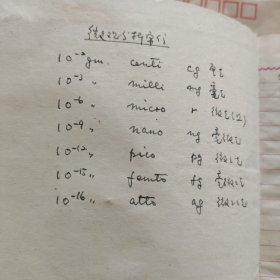 微超分析单位
10⁻²gm. centi cg 毫克
10⁻³ 〃 milli mg 毫克
10⁻⁶ 〃 micro r 微克(γ)
10⁻⁹ 〃 nano ng 毫微克
10⁻¹² 〃 pico pg 微微克
10⁻¹⁵ 〃 femto fg 毫微微克
10⁻¹⁶ 〃 atto ag 微微微克